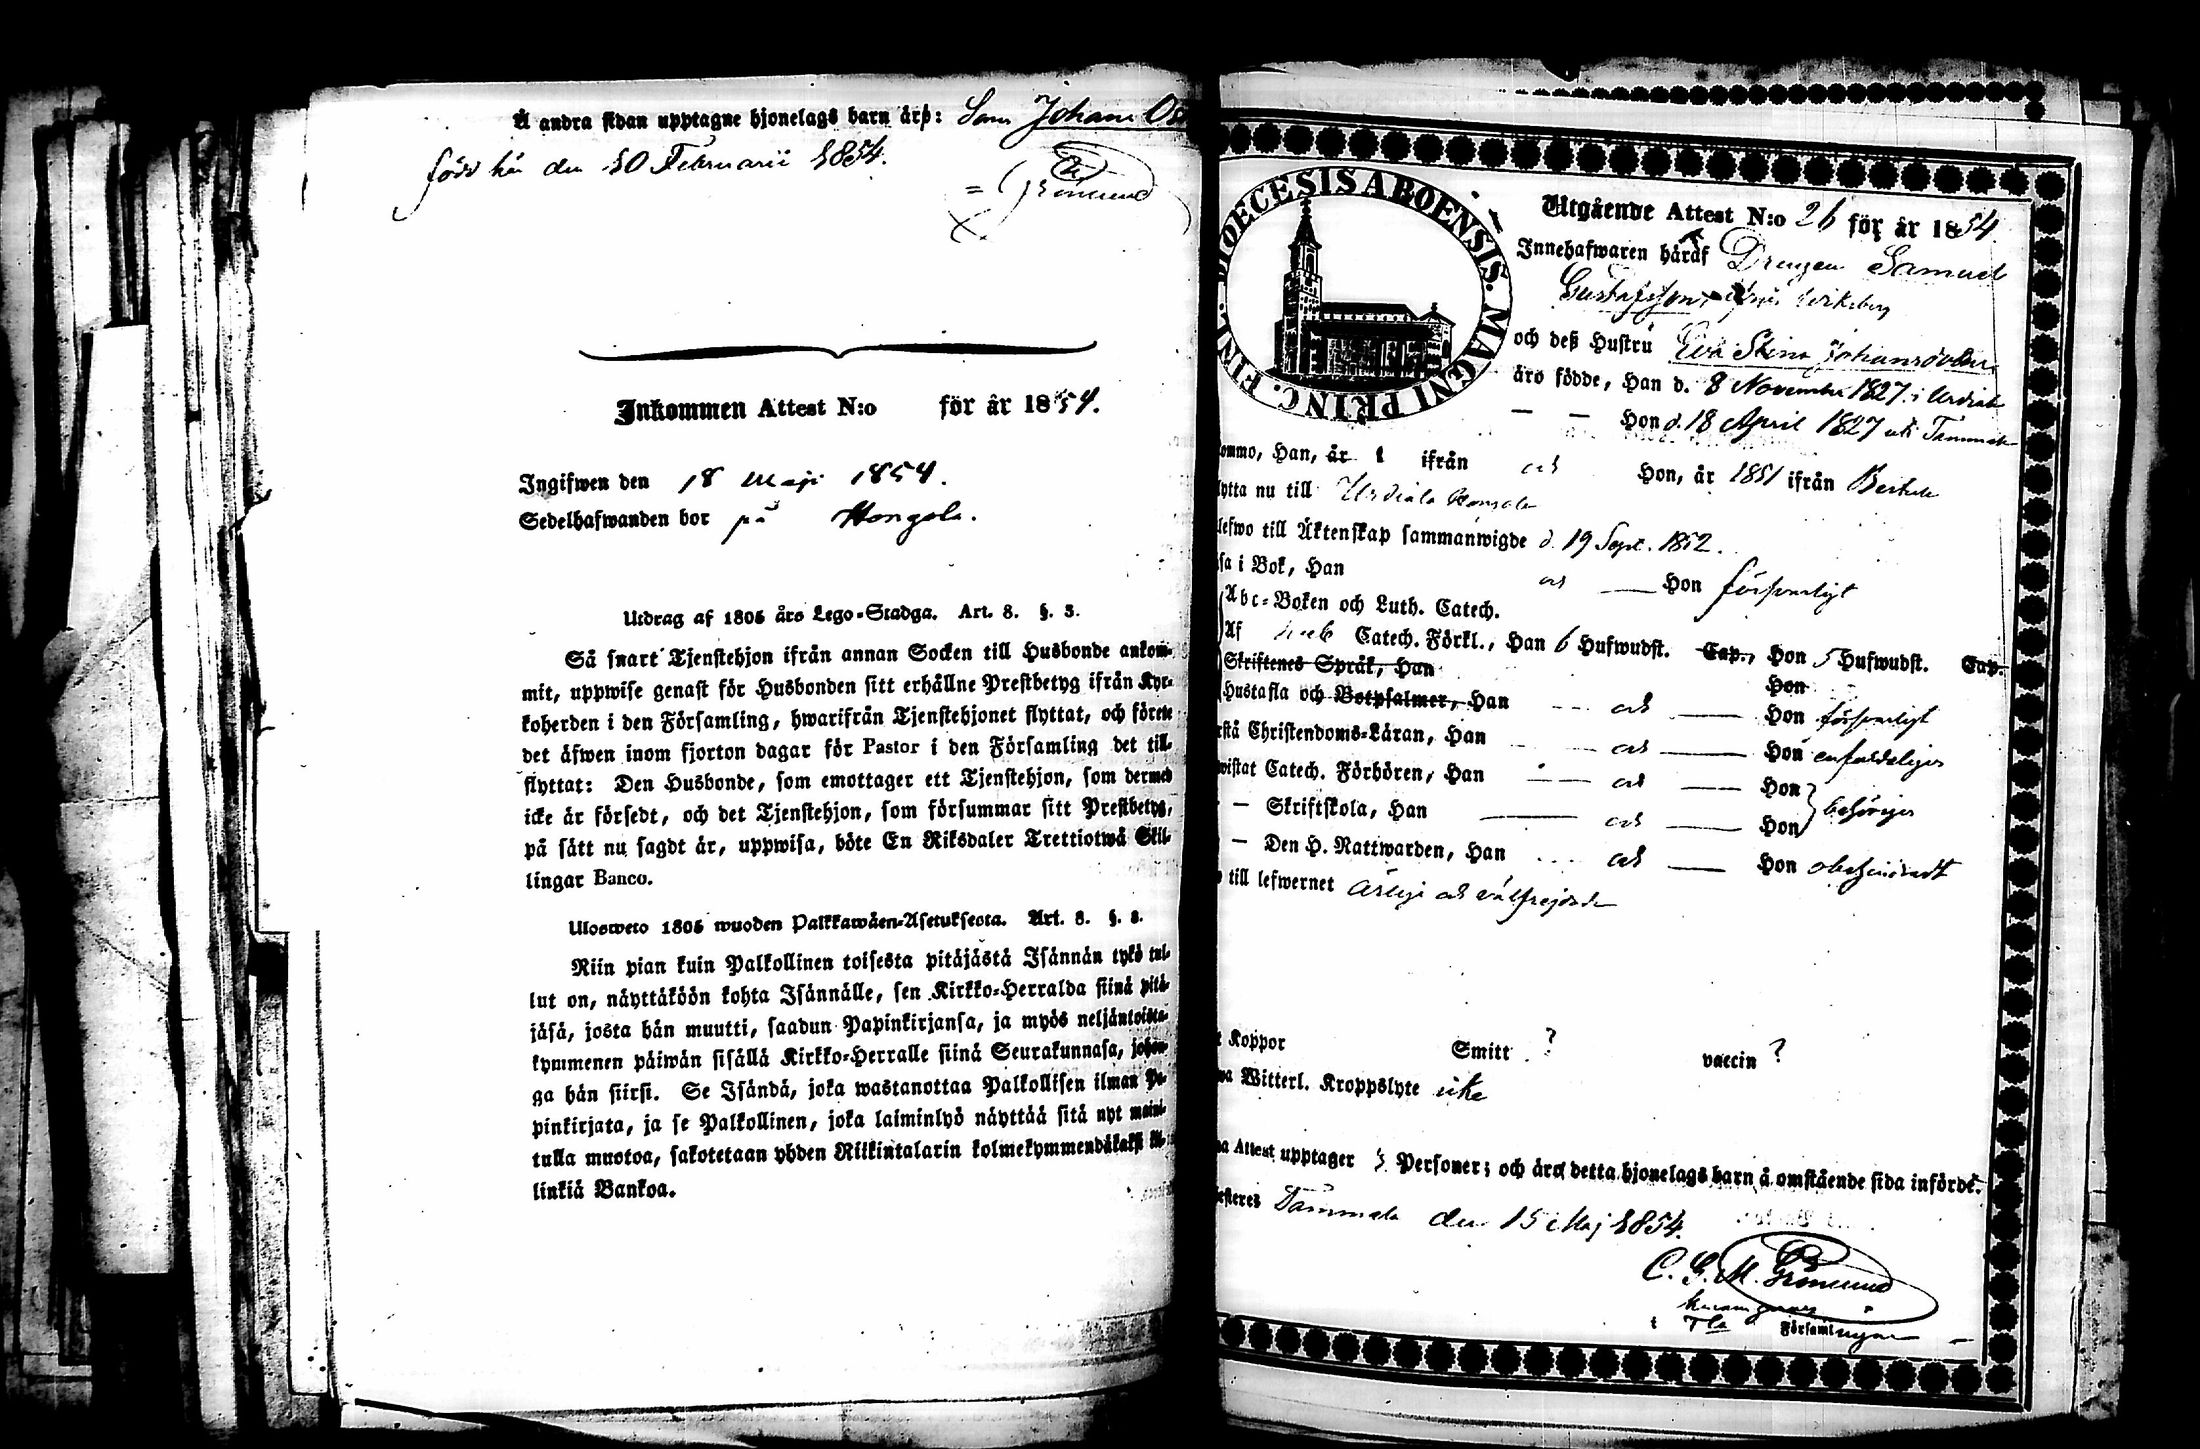 Å andra sidan upptagne hjonelags barn äro: Son Johan Os
född här den 10 Februarii 1854.
Grönlund
Inkommen Attest N:o för år 1854.
Ingifwen den 18 Maji 1854.
Sedelhafwanden bor på Hongola.
Utdrag af 1805 års Lego-Stadga. Art. 8. §. 3.
Så snart Tjenstehjon ifrån annan Socken till Husbonde ankom-
mit, uppwise genast för Husbonden sitt erhållne Prestbetyg ifrån Kyr-
koherden i den Församling, hwarifrån Tjenstehjonet flyttat, och förete
det äfwen inom fjorton dagar för Pastor i den Församling det till-
flyttat: Den Husbonde, som emottager ett Tjenstehjon, som dermed
icke är försedt, och det Tjenstehjon, som försummar sitt Prestbetyg,
på sätt nu sagdt är, uppwisa, böte En Riksdaler Trettiotwå Skil-
lingar Banco.
Ulosweto 1805 wuoden Palkkawäen-Asetuksesta. Art. 8. §. 3.
Niin pian kuin Palkollinen toisesta pitäjästä Isännän tykö tul-
lut on, näyttäköön kohta Isännälle, sen Kirkko-Herralda siinä pitä-
jäsä, josta hän muutti, saadun Papinkirjansa, ja myös neljäntoista-
kymmenen päiwän sisällä Kirkko-Herralle siinä Seurakunnasa, johon-
ga hän siirsi. Se Isändä, joka wastanottaa Palkollisen ilman Pa-
pinkirjata, ja se Palkollinen, joka laiminlyö näyttää sitä nyt maini-
tulla muotoa, sakotetaan yhden Riikintalarin kolmekymmendäkaksi kil-
linkiä Bankoa.
DIOECESIS ABOENSIS. MAGNI PRINC. FINL.
Utgående Attest N:o 26 för år 1854
Innehafwaren häraf Drengen Samuel
Gustafsson
och deß Hustru Eva Stina Johansdotter
äro födde, Han d. 8 November 1827 i Urdiala
— — Hon d. 18 April 1827 uti Tammela
kommo, Han, år ifrån och Hon, år 1851 ifrån
flytta nu till Urdiala
blefwo till Äktenskap sammanwigde d. 19 Sept. 1852.
äsa i Bok, Han och — Hon förswarligt
Abc-Boken och Luth. Catech.
Af Catech. Förkl., Han 6 Hufwudst. Cap., Hon 5 Hufwudst. Cap.
Skriftenes Språk, Han Hon
Hustafla och Botpsalmer, Han och — Hon förswarligt
rstå Christendoms-Läran, Han och — Hon enfaldeligen
wistat Catech. Förhören, Han — och — Hon
— Skriftskola, Han — och — Hon behörigen
— Den H. Nattwarden, Han och — Hon obehindradt
till lefwernet ärlige och välfrejdade
t Koppor Smitt ? vaccin ?
wa Witterl. Kroppslyte icke
na Attest upptager 3 Personer; och äro detta hjonelags barn å omstående sida införde.
esteres Tammela den 15 Maj 1854.
C. G. M. Grönlund
i Tla Församlingen